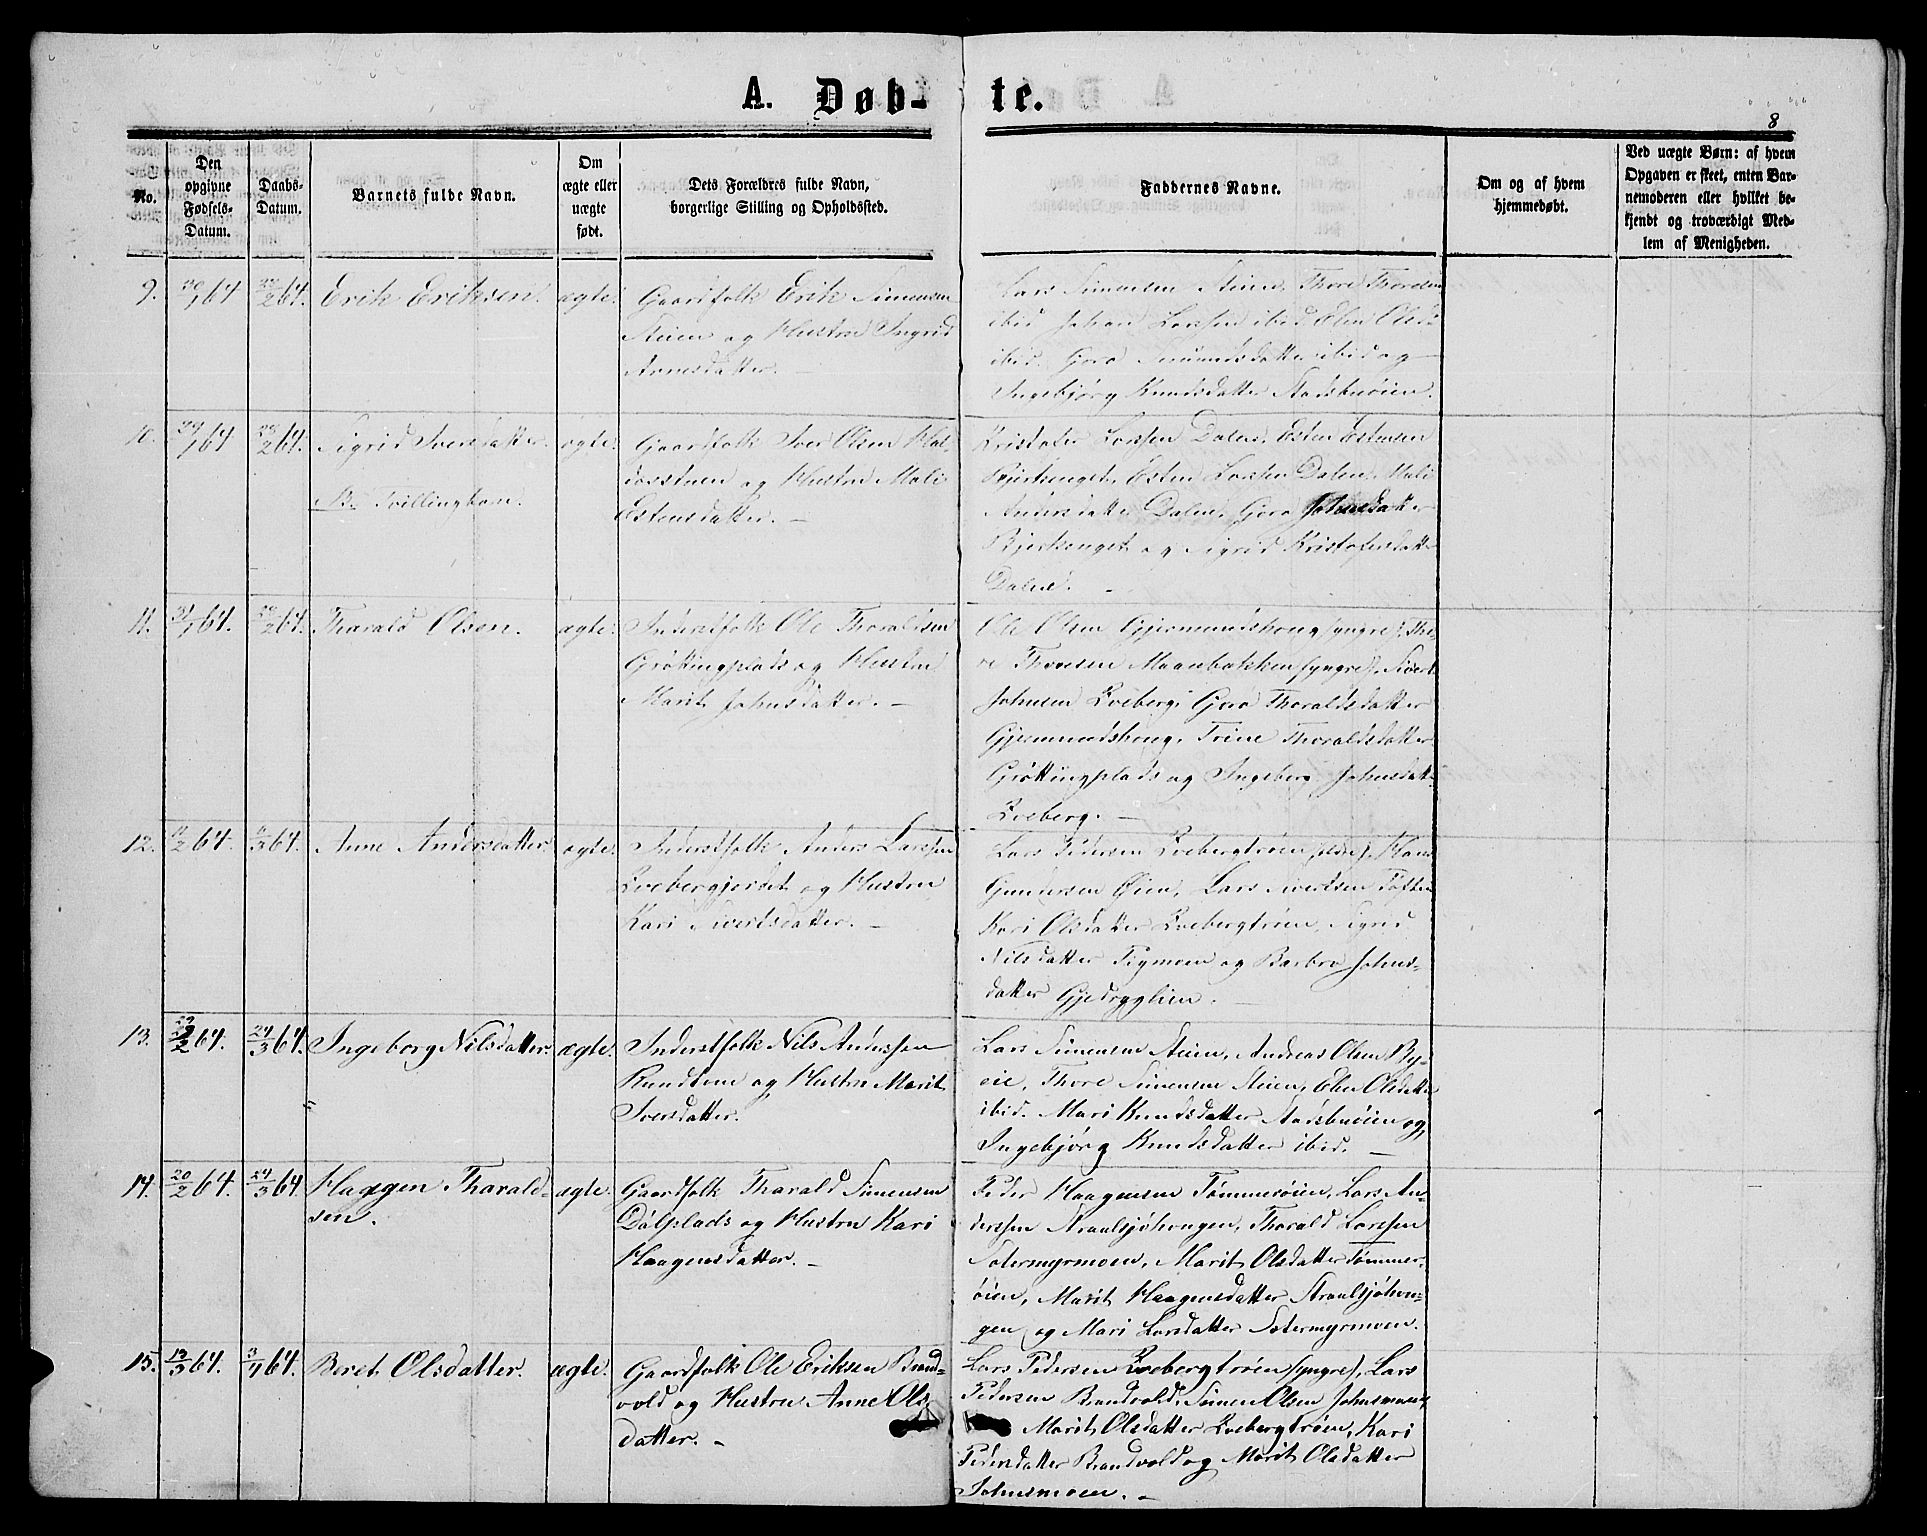 A. Døb-te.
8
No.
Den opgivne Fødsels-Datum.
Daabs-Datum.
Barnets fulde Navn.
Om ægte eller uægte født.
Dets Forældres fulde Navn, borgerlige Stilling og Opholdssted.
Faddernes Navne.
Om og af hvem hjemmedøbt.
Ved uægte Børn: af hvem Opgaven er skeet, enten Barnemoderen eller hvilket bekjendt og troværdigt Medlem af Menigheden.
9.
Erik Eriksen.
ægte.
Gaardfolk Erik Simensen
Steien og Hustru Ingrid
Arnesdatter. –
Lars Simensen Steien, Thore Thoresen
ibid Johan Larssen ibid. Eben Olsd:
ibid. Goro Simensdatter ibid og
Ingebjørg Knudsdatter Stadsbuøien.
10.
Sigrid Iversdatter.
Tvillingbarn.
ægte.
Gaardfolk Iver Olsen Hal-
dorsstuen og Hustru Mali
Estensdatter. –
Kristofer Larssen Dalen, Esten Estensen
Bjerkenget, Esten Larssen Dalen, Mali
Andersdatter Dalen, Goro Johnsdatter
Bjerkenget og Sigrid Kristofersdatter
Dalen. –
11.
31/1 64.
Tharald Olsen.
ægte.
Inderstfolk Ole Tharaldsen
Grøttingplads og Hustru
Marit Johnsdatter. –
Ole Olsen Gjermundshoug (yngre), Tho-
re Thoresen Maanbakken (yngre), Sivert
Johnsen Kveberg, Goro Tharaldsdatter
Gjermundshoug, Trine Tharaldsdatter
Grøttingplads og Ingeborg Johnsdatt.
Kveberg. –
12.
Anne Andersdatter.
ægte.
Inderstfolk Anders Larssen
Kvebergjordet og Hustru
Kari Sivertsdatter. –
Lars Pedersen Kvebergtrøen (eldre), Hans
Gundersen Øien, Lars Sivertsen Toften
Kari Olsdatter Kvebergtrøen, Sigrid
Nilsdatter Tigmoen og Barbro Johns-
datter Gjedrygglien. –
13.
24/3 64.
Ingeborg Nilsdatter.
ægte.
Inderstfolk Nils Anderssen
Rundtom og Hustru Marit
Iversdatter.
Lars Simensen Steien, Andreas Olsen By-
eie, Thore Simensen Steien, Eben Olsdatter
ibid. Mari Knudsdatter Stadsbuøien og
Ingebjørg Knudsdatter ibid. –
14.
20/2 64.
24/3 64
Haagen Tharald-
sen.
ægte.
Gaardfolk Tharald Simensen
Dølplads og Hustru Kari
Haagensdatter. –
Peder Haagensen Tømmerøien, Lars An-
derssen Straalsjøhougen, Tharald Larssen
Satermyrmoen, Marit Olsdatter Tømmer-
øien, Marit Haagensdatter Straalsjøhou-
gen og Mari Larsdatter Satermyrmoen.
15.
13/3 64.
3/4 64.
Beret Olsdatter.
ægte.
Gaardfolk Ole Eriksen Brand-
vold og Hustru Anne Ols-
datter. –
Lars Pedersen Kvebergtrøen (yngre), Lars
Pedersen Brandvold, Simen Olsen Johnsmoen,
Marit Olsdatter Kvebergtrøen, Kari
Pedersdatter Brandvold og Marit Olsdatter
Johnsmoen. –